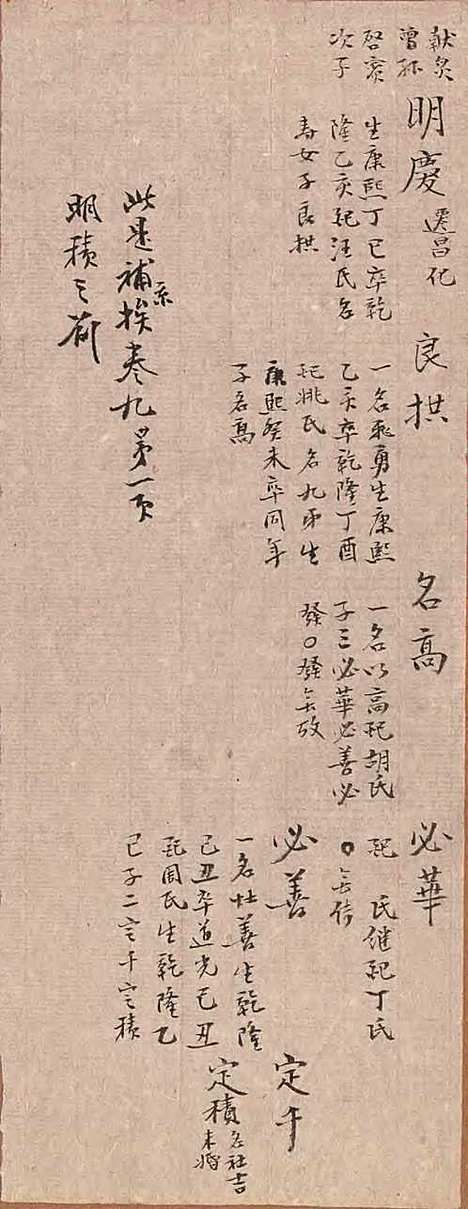 獻炅
曾孫
啓賓
次子
明慶 遷昌化
生康熙丁巳卒乾
隆乙亥配汪氏名
壽女子良拱
良拱
一名乘勇生康熙
乙亥卒乾隆丁酉
配姚氏名九弟生
康熙癸未卒同年
子名高
名高
一名以高配胡氏
子三必華必善必
發○發無攷
必華
配 氏继配丁氏
○無傳
必善
一名社善生乾隆
己丑卒道光己丑
配周氏生乾隆乙
巳子二定千定積
定千
定積 名社吉
未婚
此是補系挨卷九第一頁
明積之前